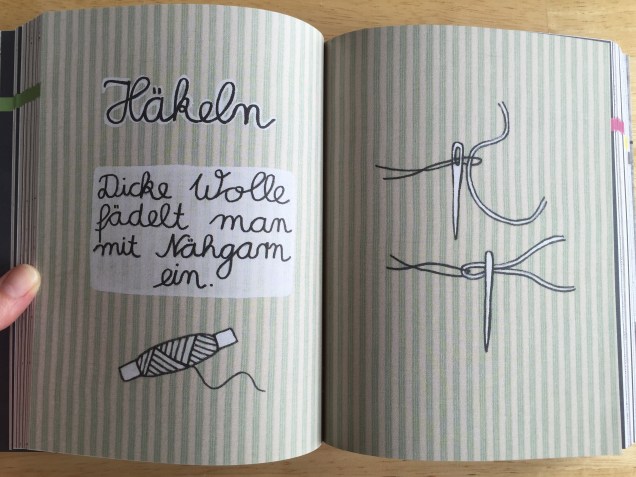 Häkeln
Dicke Wolle
fädelt man
mit Nähgarn
ein.